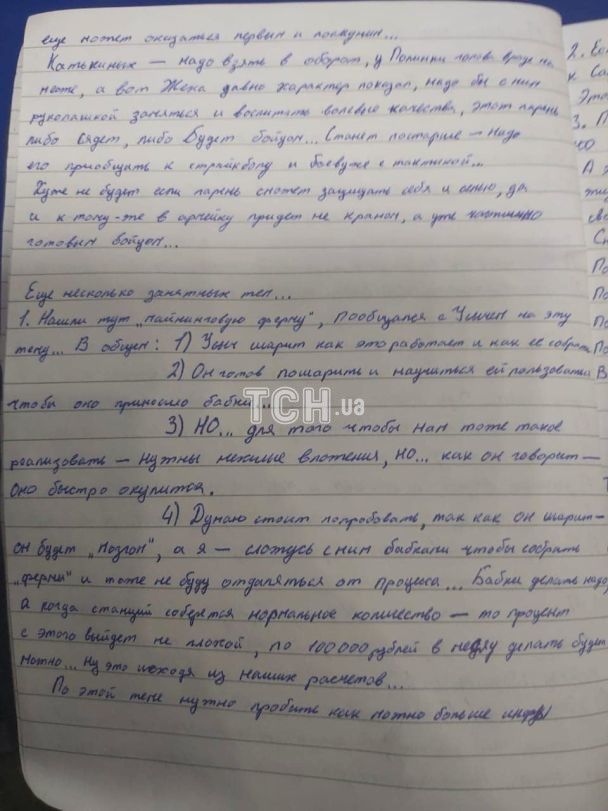 еще может оказаться первым и
Катькиных — надо взять в оборот, у Полинки голова вроде на
месте, а вот Жека давно характер показал, надо бы с ним
рукопашкой заняться и воспитать волевые качества, этот парень
либо сядет, либо будет бойцом... Станет постарше — надо
его приобщать к страйкболу и боевухе с тактикой...
Хуже не будет если парень сможет защищать себя и семью, да
и к тому-же в армейку придет не краном, а уже частично
готовым бойцом...
Еще несколько занятных тем...
1. Нашли тут „майнинговую ферму", пообщался с на эту
тему... В общем: 1) шарит как это работает и как ее собрать
2) Он готов пошарить и научиться ей пользоваться
чтобы оно приносило бабки...
ТСН.ua
3) НО... для того чтобы нам тоже такое
реализовать — нужны нехилые вложения, но... как он говорит —
оно быстро окупится.
4) Думаю стоит попробовать, так как он шарит —
он будет „мозгом", а я — сложусь с ним бабками чтобы собрать
„фермы" и тоже не буду отдаляться от процеса... Бабки делать надо,
а когда станций соберется нормальное количество — то процент
с этого выйдет не плохой, по 100 000 рублей в неделю делать будет
можно... Ну это исходя из наших расчетов...
По этой теме нужно пробить как можно больше инфы
2.
к
Это
3. П
ю
А
С
По
По
По
По
В